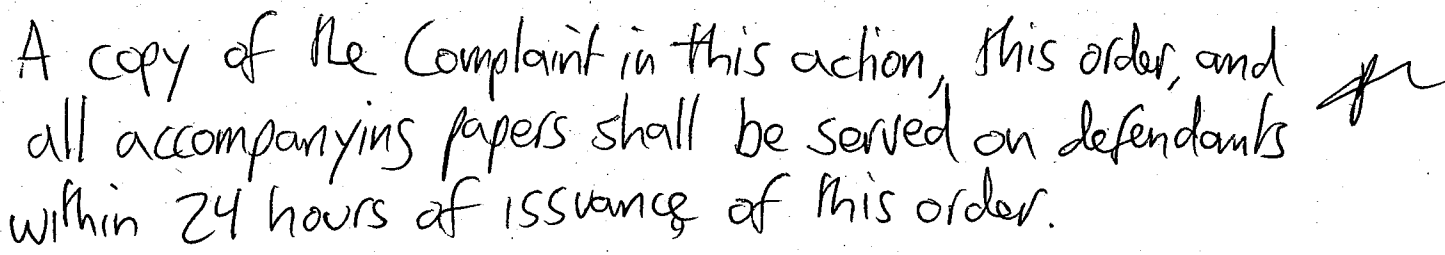 A copy of the Complaint in this action, this order, and
all accompanying papers shall be served on defendants
within 24 hours of issuance of this order.